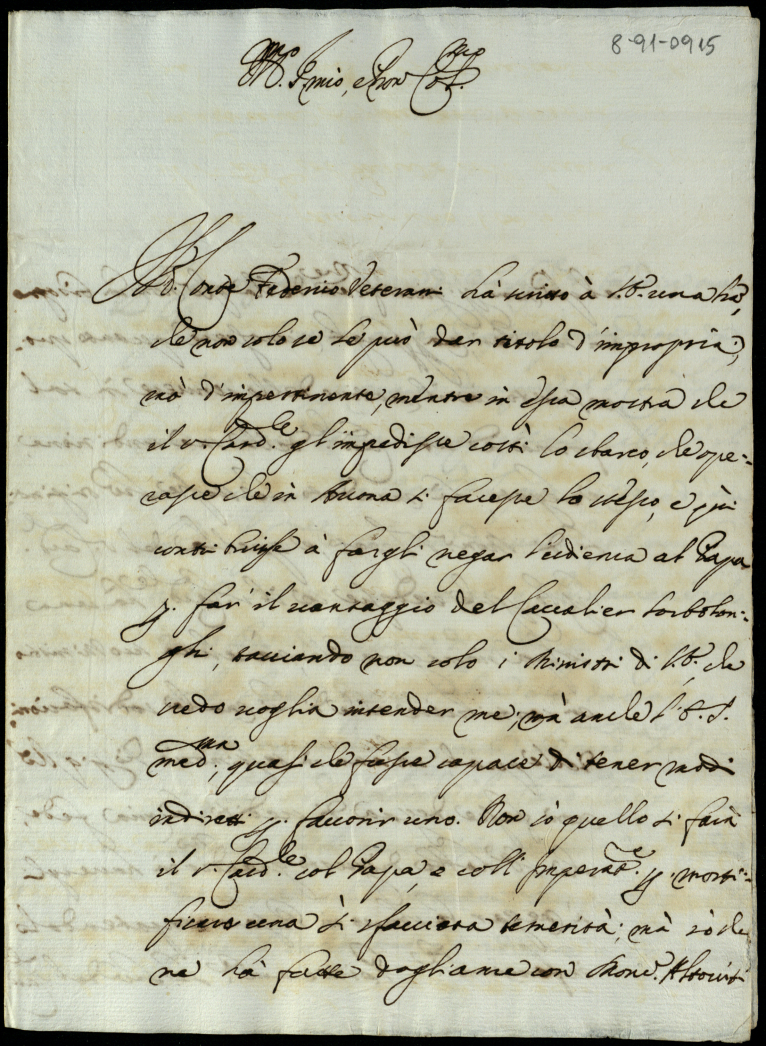 8-91-0915
Ill.mo S.r mio, e Pron Col.mo
Il S.r Conte Federico Veterani hà scritto à S.E. una l'ra,
che non solo se le può dar titolo d'impropria,
mà d'impertinente, mentre in essa mostra che
il s.r Card.le gl'impedisse costì lo sbarco, che ope=
rasse che in Ancona si facesse lo stesso, e quì
contribuisse à fargli negar l'udienza al Papa
p. far' il vantaggio del Cavalier Sorbolon=
ghi, tacciando non solo i Ministri di S.E. che
credo voglia intender me, mà anche l'E.S.
med.ma, quasi che fusse capace di tener modi
indiretti p. favorir uno. Non sò quello si farà
il s.r Card.le col Papa, e coll' Imperat.e p. morti=
ficare una sì sfacciata temerità; mà sò che
ne hà fatte doglianze con Mons.r Altoviti